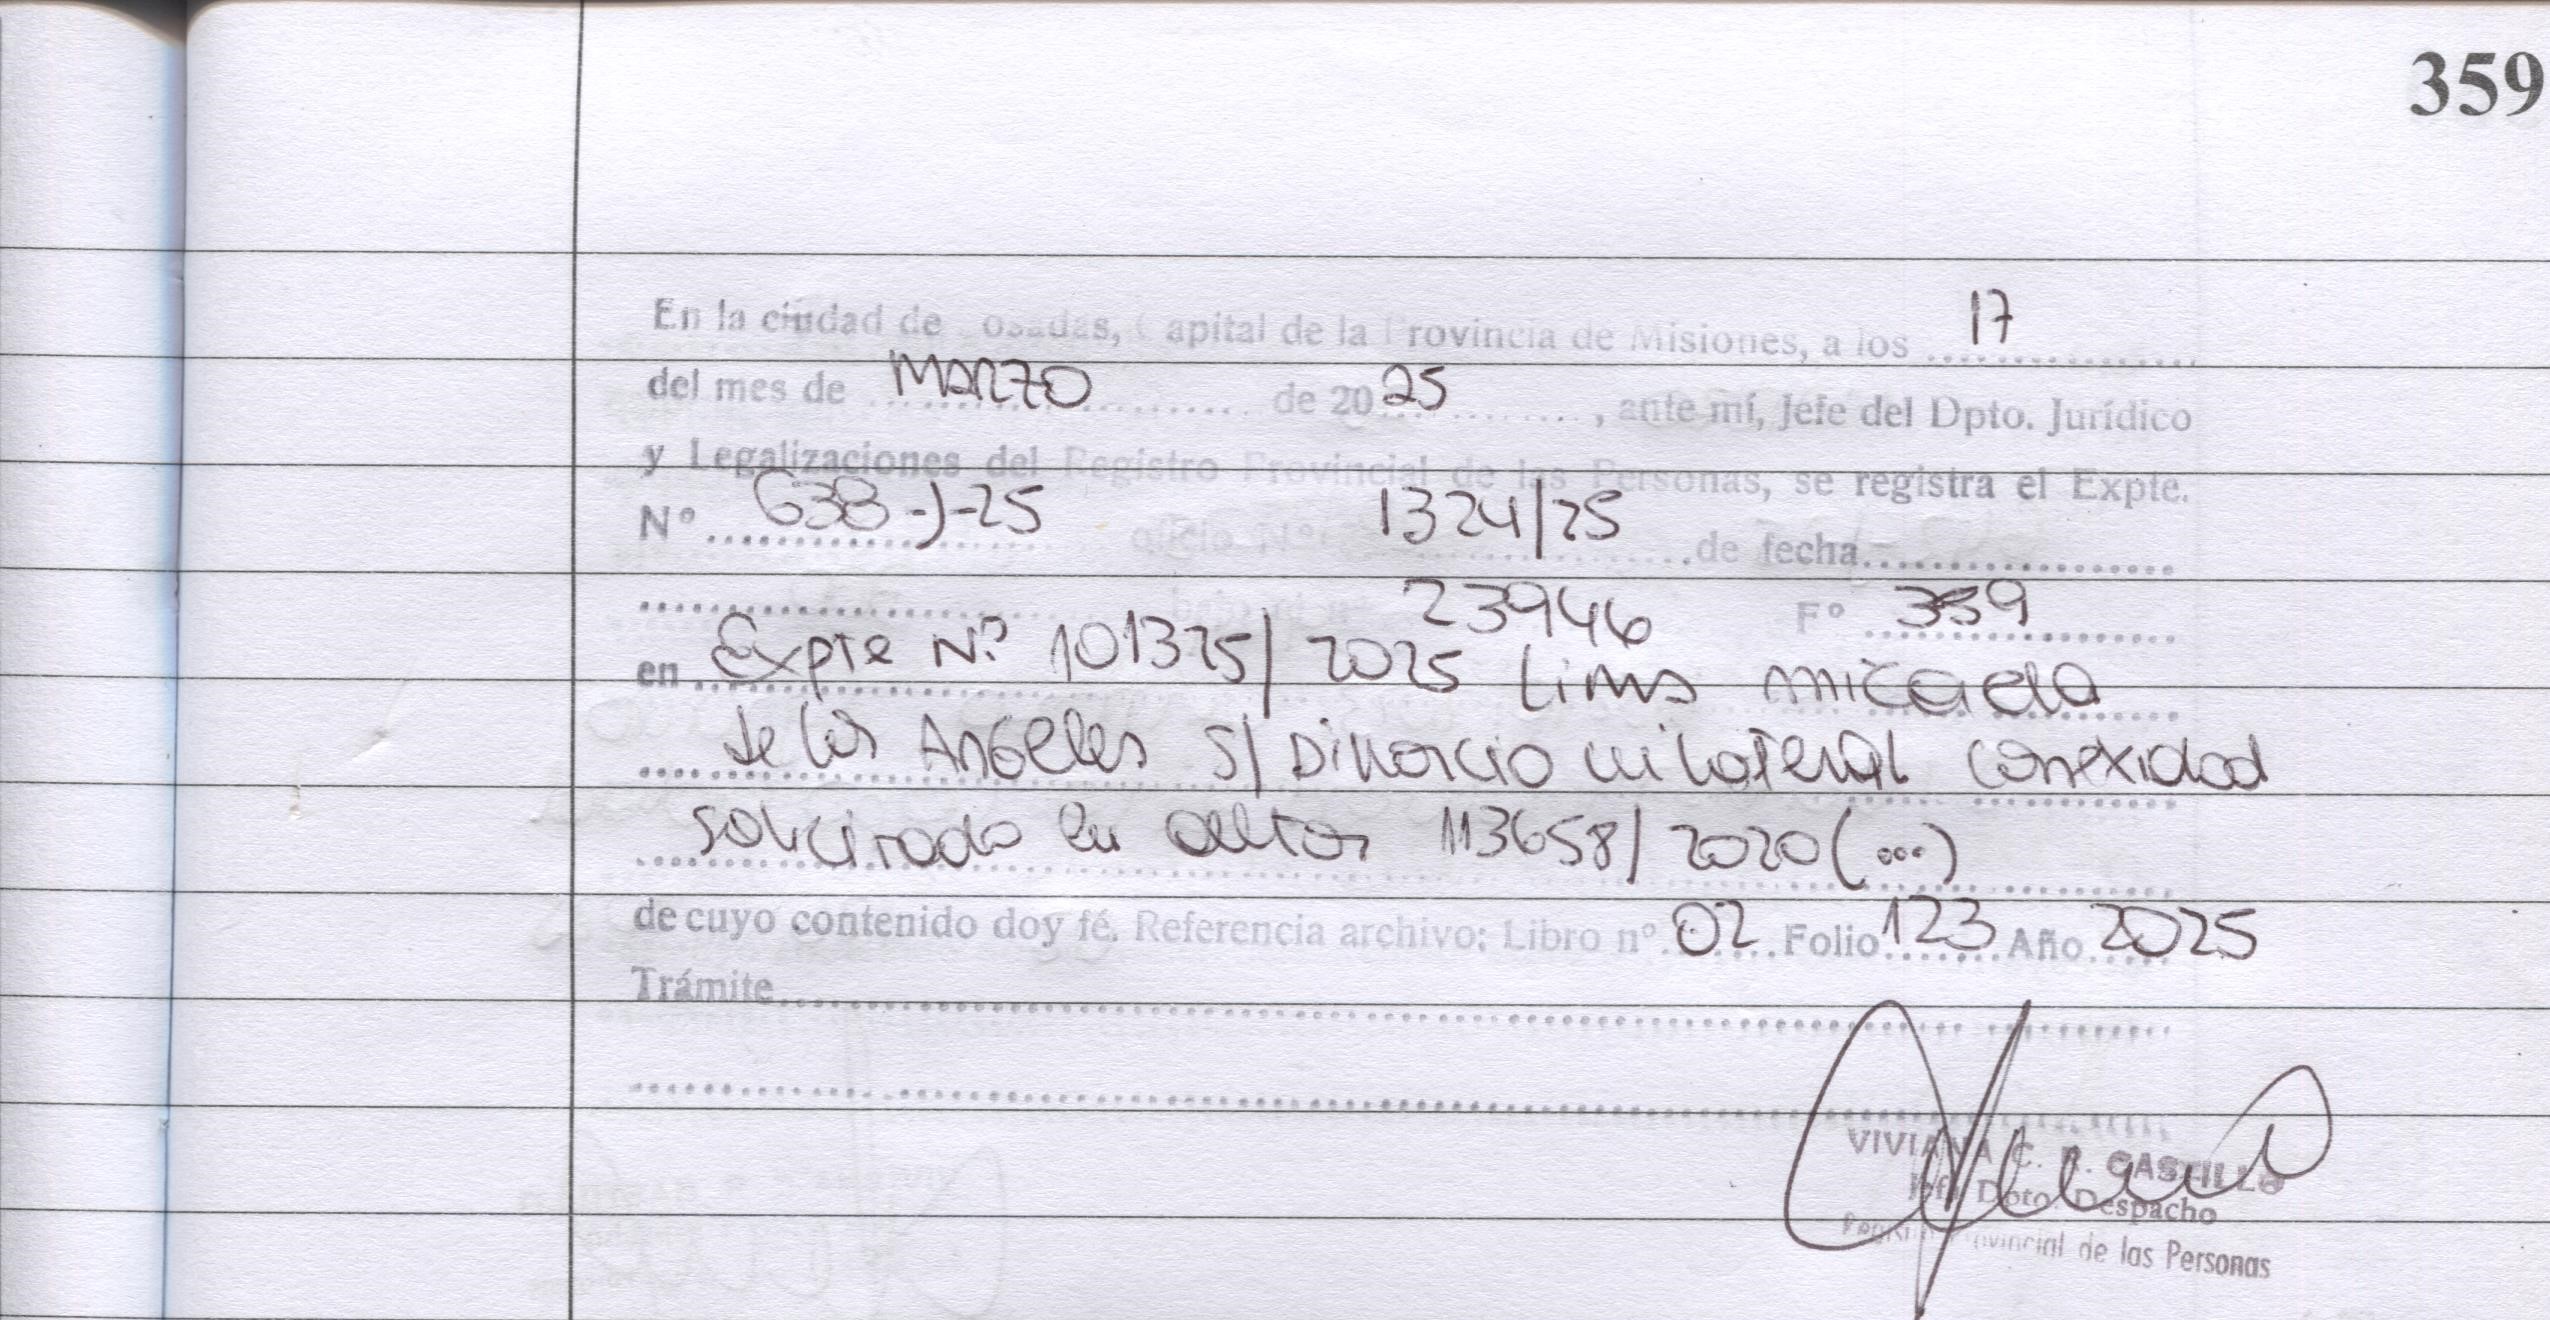 359
En la ciudad de Posadas, Capital de la Provincia de Misiones, a los 17
del mes de MARZO de 20 25, ante mí, Jefe del Dpto. Jurídico
y Legalizaciones del Registro Provincial de las Personas, se registra el Expte.
Nº 638-J-25 oficio Nº 1324/25 de fecha
23946 Fº 359
en Expte Nº 101325/2025 Lima Micaela
de los Angeles S/ Divorcio unilateral conexidad
solicitada en autos 113658/2020 (...)
de cuyo contenido doy fé. Referencia archivo: Libro nº 02 Folio 123 Año 2025
Trámite
VIVIANA C. R. CASTILLO
Jefe Dpto. Despacho
Registro Provincial de las Personas